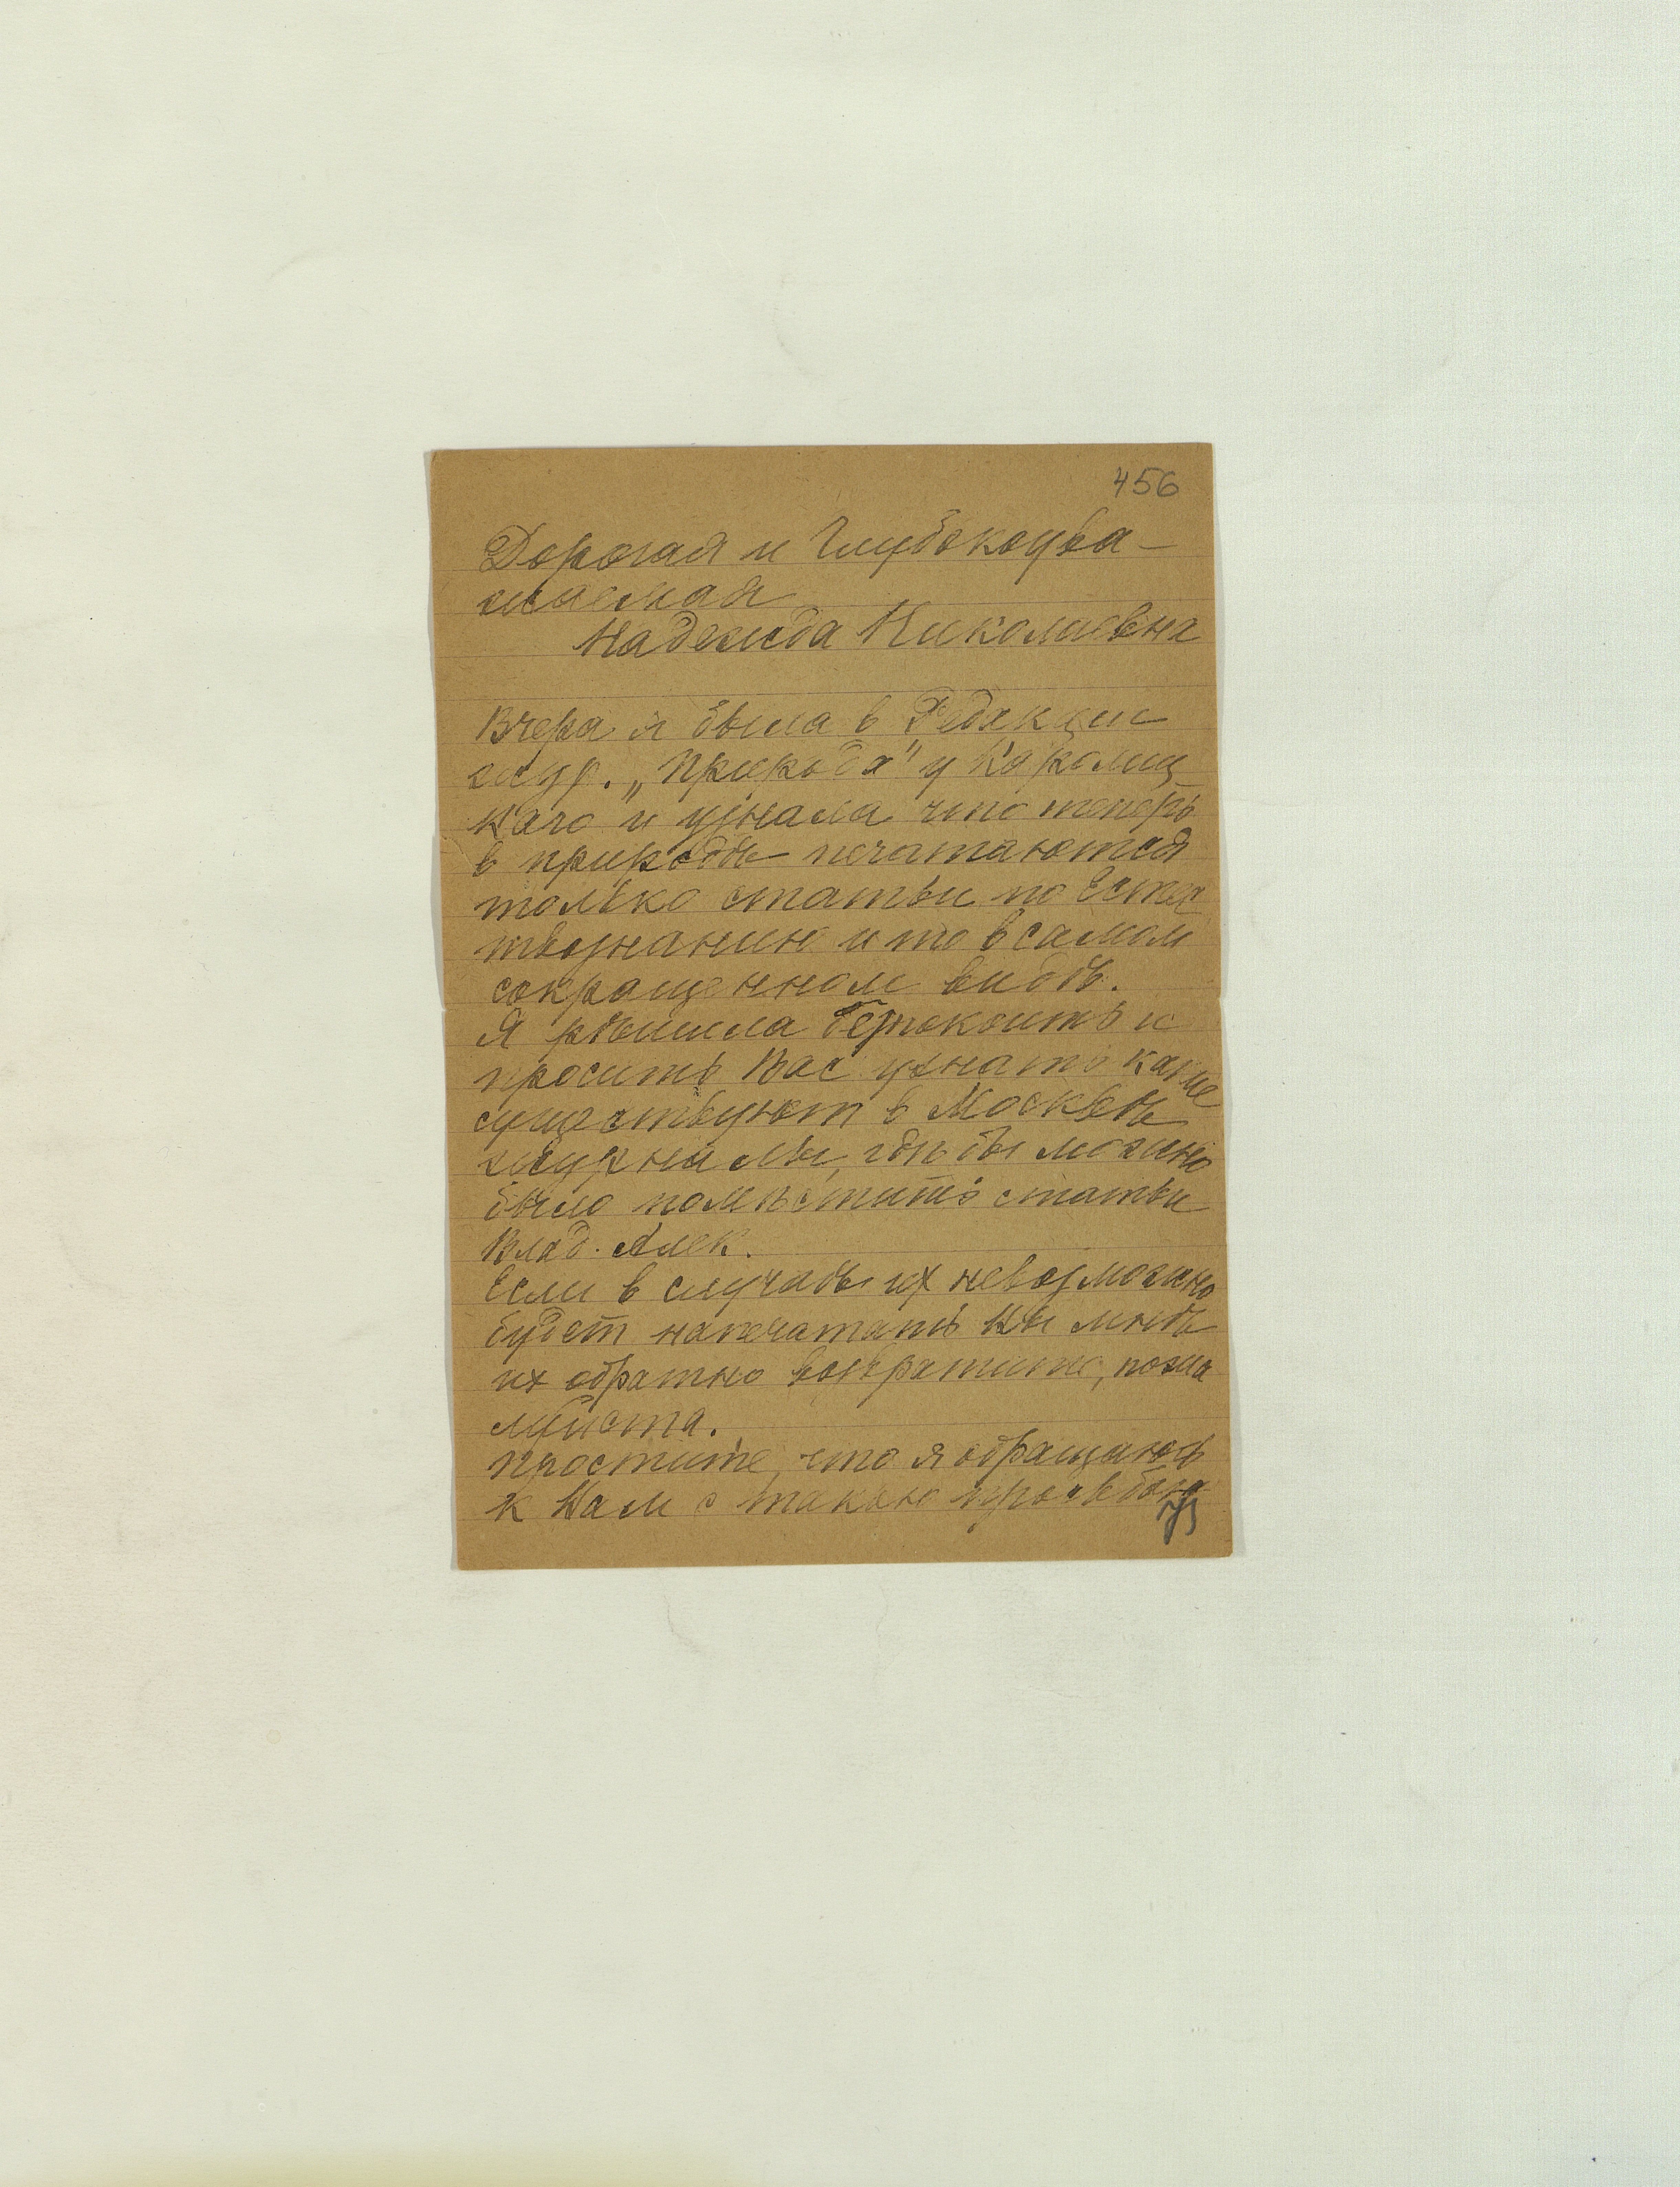 456
Дорогая и Глубокоува-
жаемая
Надежда Николаевна
Вчера я была в Редакции
жур. „Природа" у Каролиц
каго и узнала что теперь
в природѣ печатаются
только статьи по Естес
твознанию и то в самом
сокращенном видѣ.
Я рѣшила безпокоить и
просить Вас узнать какие
существуют в Москвѣ
журналы, гдѣ бы можно
было помѣстить статьи
Влад. Алек.
Если в случаѣ их невозможно
будет напечатать Вы мнѣ
их обратно возвратите, пожа
луйста.
Простите, что я обращаюсь
к Вам с такою просьбою